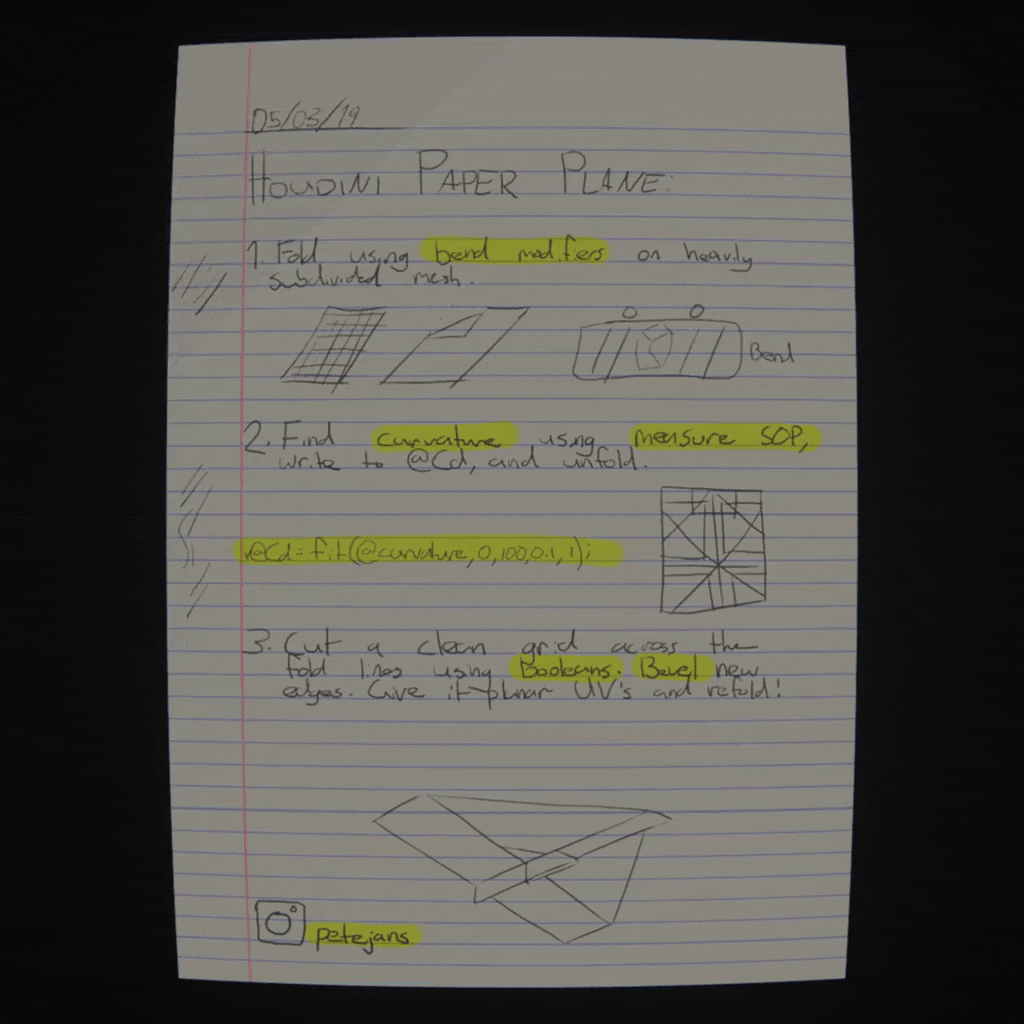 05/03/19
HOUDINI PAPER PLANE:
1. Fold using bend modifiers on heavily
subdivided mesh.
Bend
2. Find curvature using measure SOP,
write to @Cd, and unfold.
v@Cd = fit(@curvature, 0, 100, 0.1, 1);
3. Cut a clean grid across the
fold lines using Booleans. Bevel new
edges. Give it planar UV's and refold!
petejans